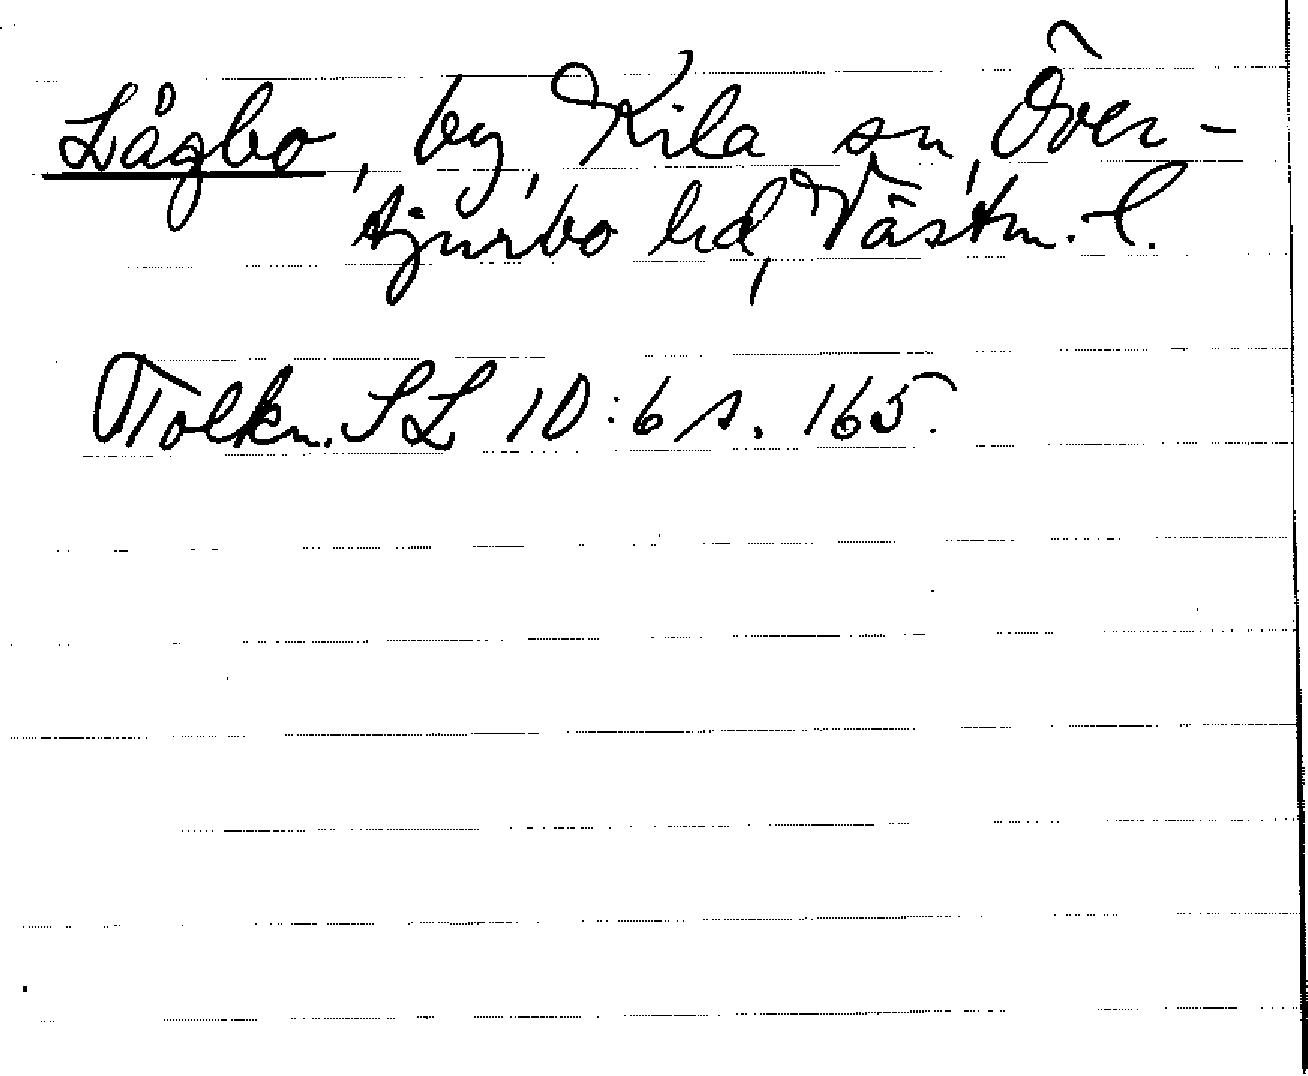 Lågbo, by, Kila sn, Över-
tjurbo hd, Västm. l.
Tolkn. SL 10:6 s. 165.